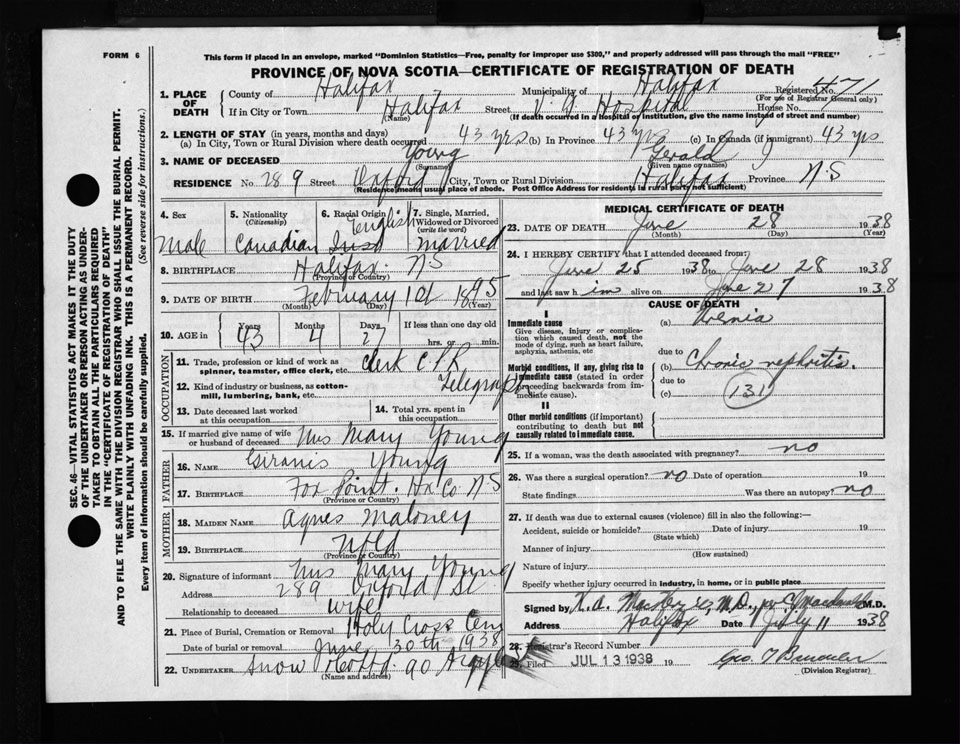 FORM 6
This form if placed in an envelope, marked "Dominion Statistics—Free, penalty for improper use $300," and properly addressed will pass through the mail "FREE"
PROVINCE OF NOVA SCOTIA—CERTIFICATE OF REGISTRATION OF DEATH
SEC. 46—VITAL STATISTICS ACT MAKES IT THE DUTY
OF THE UNDERTAKER OR PERSON ACTING AS UNDER-
TAKER TO OBTAIN ALL THE PARTICULARS REQUIRED
IN THE "CERTIFICATE OF REGISTRATION OF DEATH"
AND TO FILE THE SAME WITH THE DIVISION REGISTRAR WHO SHALL ISSUE THE BURIAL PERMIT.
WRITE PLAINLY WITH UNFADING INK. THIS IS A PERMANENT RECORD.
Every item of information should be carefully supplied.
(See reverse side for instructions.)
1. PLACE OF DEATH County of Halifax Municipality of Halifax Registered No. 471
(For use of Registrar General only)
If in City or Town Halifax Street V. G. Hospital House No.
(Name) (If death occurred in a hospital or institution, give the name instead of street and number)
2. LENGTH OF STAY (in years, months and days)
(a) In City, Town or Rural Division where death occurred 43 yrs (b) In Province 43 yrs (c) In Canada (if immigrant) 43 yrs
3. NAME OF DECEASED Young Gerald J
(Surname) (Given name or names)
RESIDENCE No. 289 Street Oxford City, Town or Rural Division Halifax Province N.S
(Residence means usual place of abode. Post Office Address for residents in rural parts not sufficient)
4. Sex Male
5. Nationality (Citizenship) Canadian
6. Racial Origin English Irish
7. Single, Married, Widowed or Divorced (write the word) Married
8. BIRTHPLACE Halifax. N.S
(Province or Country)
9. DATE OF BIRTH February 1st 1895
(Month) (Day) (Year)
10. AGE in Years 43 Months 4 Days 27 If less than one day hrs. or min.
OCCUPATION
11. Trade, profession or kind of work as spinner, teamster, office clerk, etc. Clerk C P R
12. Kind of industry or business, as cotton-mill, lumbering, bank, etc. Telegraph
13. Date deceased last worked at this occupation
14. Total yrs. spent in this occupation
15. If married give name of wife or husband of deceased Mrs Mary Young
FATHER
16. Name Young
17. Birthplace Fox Point. Hx Co N S
(Province or Country)
MOTHER
18. Maiden Name Agnes Maloney
19. Birthplace Nfld
(Province or Country)
20. Signature of informant Mrs Mary Young
Address 289 Oxford St
Relationship to deceased wife
21. Place of Burial, Cremation or Removal Holy Cross Cem
Date of burial or removal June 30th 1938
22. Undertaker Snow & Co Ltd. 90 Argyle
(Name and address)
MEDICAL CERTIFICATE OF DEATH
23. DATE OF DEATH June 28 1938
(Month) (Day) (Year)
24. I HEREBY CERTIFY that I attended deceased from:
June 25 1938 to June 28 1938
and last saw him alive on June 27 1938
CAUSE OF DEATH
I
Immediate cause
Give disease, injury or complication which caused death, not the mode of dying, such as heart failure, asphyxia, asthenia, etc
(a) Uremia
due to
Morbid conditions, if any, giving rise to immediate cause (stated in order proceeding backwards from immediate cause).
(b) Chronic nephritis.
due to
(c) 131
II
Other morbid conditions (if important) contributing to death but not causally related to immediate cause.
25. If a woman, was the death associated with pregnancy? no
26. Was there a surgical operation? no Date of operation 19
State findings Was there an autopsy? no
27. If death was due to external causes (violence) fill in also the following:—
Accident, suicide or homicide? Date of injury 19
(State which)
Manner of injury
(How sustained)
Nature of injury
Specify whether injury occurred in industry, in home, or in public place
Signed by K. A. MacKenzie, M.D., per M.D.
Address Halifax Date July 11 1938
28. Registrar's Record Number
29. Filed JUL 13 1938 19
(Division Registrar)